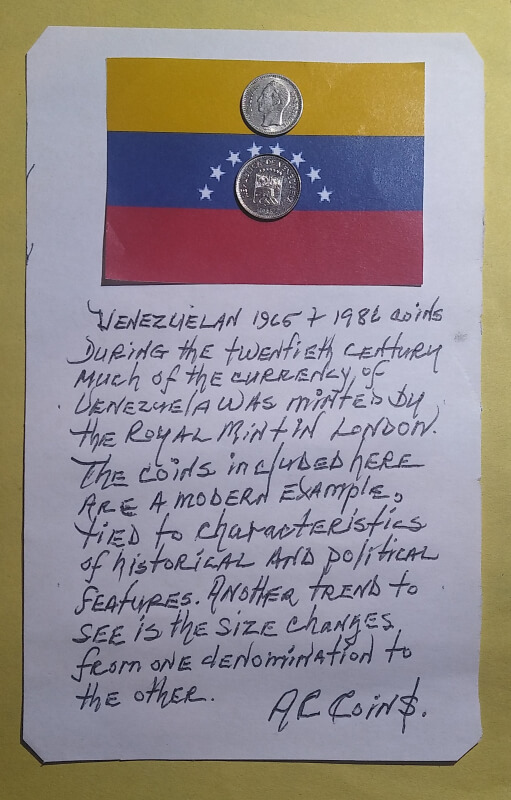 REPUBLICA DE VENEZUELA
VENEZUELAN 1965 + 1986 coins
DURING the twentieth CENTURY
Much of the CURRENCY of
VENEZUELA WAS minted by
the ROYAL Mint in LONDON.
The coins included here
ARE A MODERN EXAMPLE,
tied to characteristics
of historical AND political
FEATURES. Another TREND to
SEE is the SIZE changes
from one denomination to
the other.
AC Coin$.